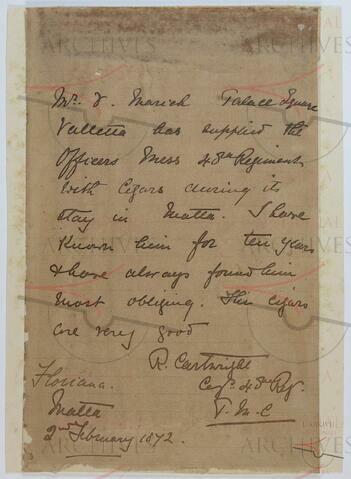 Mr. V. Marich Palace Square
Valletta has supplied the
Officers Mess 48th Regiment
with Cigars during its
stay in Malta. I have
known him for ten years
& have always found him
most obliging. His cigars
are very good
R. Cartwright
Capt. 48th Reg.
P. M. C
Floriana.
Malta
2nd February 1872.
ARCHIVES